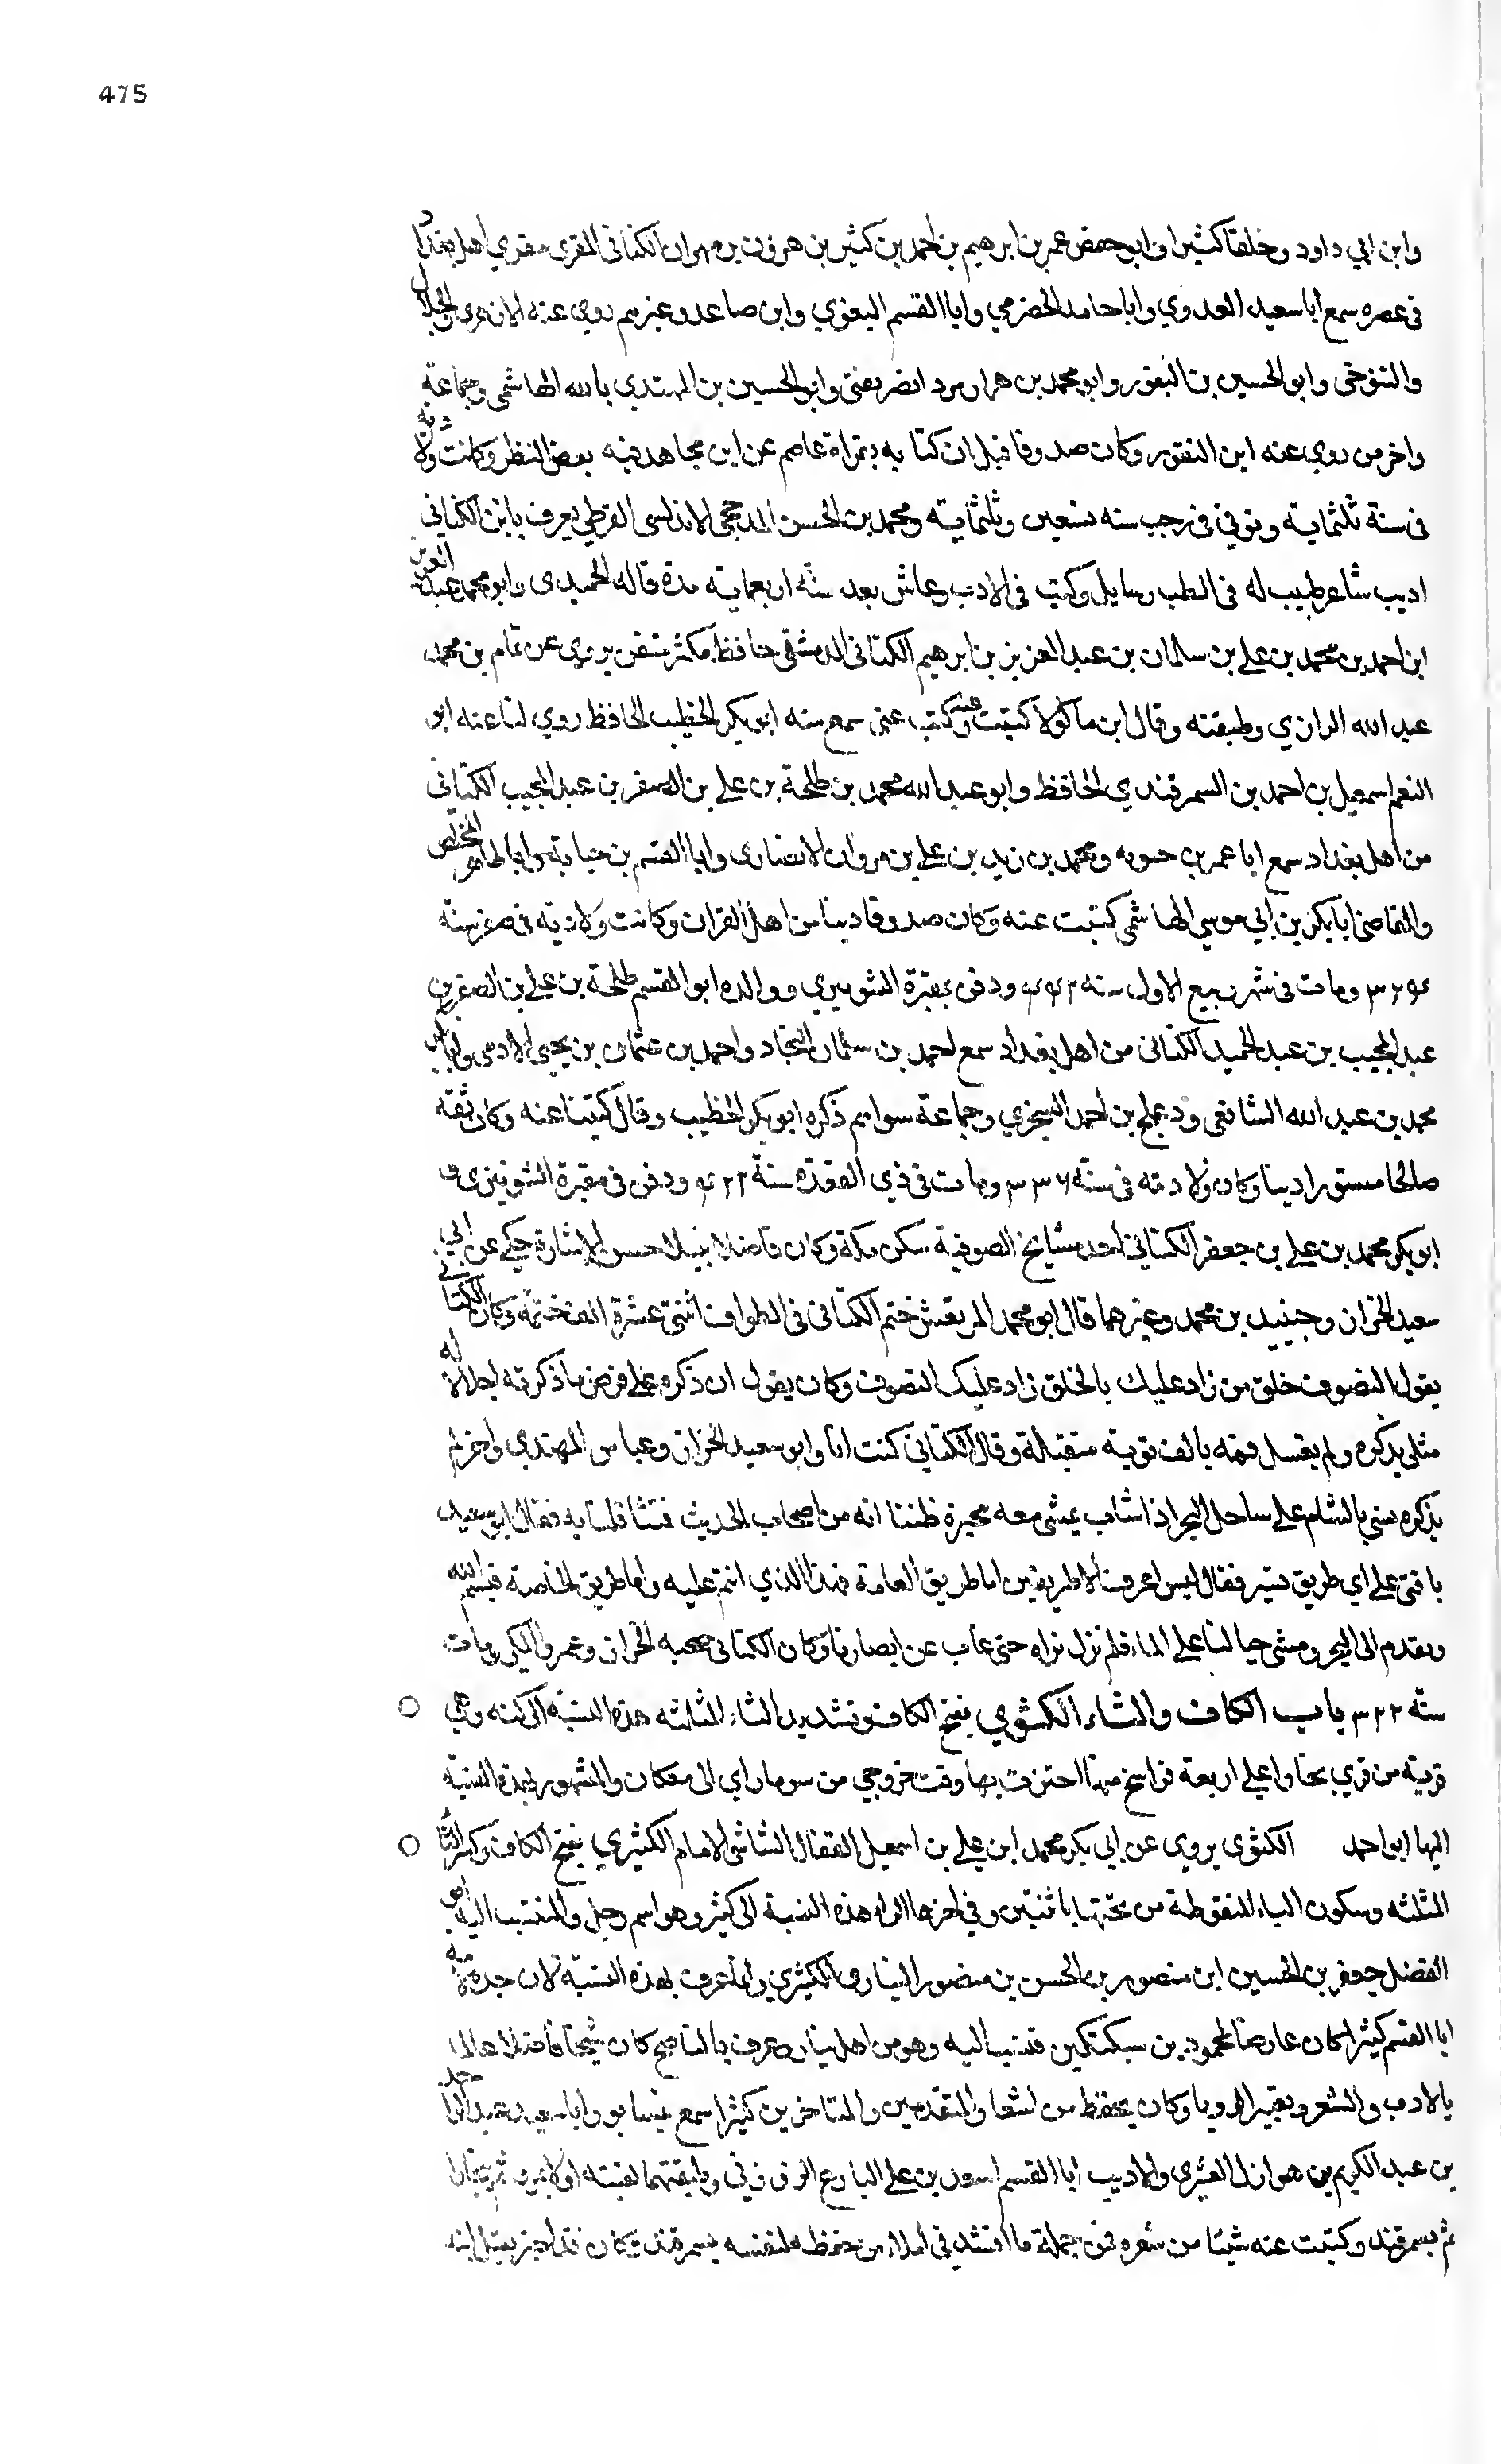 475
وابن ابي داود وخلقا كثيرا وابو حفص عمر بن ابرهيم بن احمد بن كثير بن هرون بن مهران الكتاني المقرى مقري اهل بغداد
في عصره سمع ابا سعيد العدوي وابا حامد الحضرمي وابا القسم البغوي وابن صاعد وغيرهم روي عنه الازهري والخلال
والتنوخي وابو الحسين بن النقور وابو محمد بن هزارمرد الصريفنى وابو الحسين بن المهتدي بالله الهاشمي وجماعة
واخر من روي عنه ابن النقور وكان صدوقا قيل ان كتابه بقراة عاصم عن ابن مجاهد فيه بعض النظر وكانت ولادته
في سنة ثلثماية وتوفي في رجب سنه تسعين وثلثماية ومحمد بن الحسن المذحجي الاندلسى القرطبي يعرف بابن الكتاني
اديب شاعر طبيب له في الطب رسايل وكتب في الادب وعاش بعد سنة اربعماية مدة قاله الحميدى وابو محمد عبد العزيز
ابن احمد بن محمد بن علي بن سلمان بن عبد العزيز بن ابرهيم الكتاني الدمشقي حافظ مكثر متقن يروي عن تمام بن محمد
عبد الله الرازي وطبقته وقال ابن ماكولا كتبت عنه وكتب عني سمع منه ابو بكر الخطيب الحافظ روي لنا عنه ابو
القسم اسمعيل بن احمد بن السمرقندي الحافظ وابو عبد الله محمد بن طلحة بن علي بن الصقر بن عبد المجيب الكتاني
من اهل بغداد سمع ابا عمر بن حيويه ومحمد بن زيد بن علي بن مروان الانصاري وابا القسم بن حبابة وابا طاهر المخلص
والقاضي ابا بكر بن ابي موسي الهاشمي كتبت عنه وكان صدوقا دينا من اهل القران وكانت ولادته في صفر سنة
ومات في شهر ربيع الاول سنه ودفن بمقبرة الشونيزي ووالده ابو القسم طلحة بن علي بن الصقر بن
عبد المجيب بن عبد الحميد الكتاني من اهل بغداد سمع احمد بن سلمان النجاد واحمد بن عثمان بن يحيى الادمى وابا بكر
محمد بن عبد الله الشافعي ودعلج بن احمد السجزي وجماعة سواهم ذكره ابو بكر الخطيب وقال كتبنا عنه وكان ثقة
صالحا مستورا دينا وكان ولادته في سنة ٣٣٦ ومات في ذي القعدة سنة ودفن في مقبرة الشونيزى و
ابو بكر محمد بن علي بن جعفر الكتاني احد مشايخ الصوفية سكن مكة وكان فاضلا نبيلا حسن الاشارة حكي عن ابي
سعيد الخراز وجنيد بن محمد وغيرهما قال ابو محمد المرتعش ختم الكتاني في الطواف اثنتي عشرة الف ختمة وكان الكتاني
يقول التصوف خلق من زاد عليك بالخلق زاد عليك التصوف وكان يقول ان ذكره علي فرض ما ذكرته اجلالا له
مثلي يذكره ولم يغسل فمه بالف توبة متقبلة وقال الكتاني كنت انا وابو سعيد الخراز وعباس المهتدي واخر لم
يذكره نمشي بالشام علي ساحل البحر اذا شاب يمشي معه محبرة ظننا انه من اصحاب الحديث فتثاقلنا به فقال ابو سعيد
يا فتي علي اي طريق تسير فقال ليس اعرف الا طريقين اما طريق العامة فهذا الذي انتم عليه واما طريق الخاصة فبسم الله
وتقدم الى البحر ومشي حيالنا علي الماء فلم نزل نراه حتي غاب عن ابصارنا وكان الكتاني صحبه الخراز وعمر والمكي ومات
سنة ٣٢٢ باب الكاف والثاء الكثوي بفتح الكاف وتشديد الثاء المثلثه هذه النسبة الى كثه وهي
قرية من قري بخارا علي اربعة فراسخ منها اجتزت بها وقت خروجي من سومار اي الى مفكان والمشهور بهذه النسبة
اليها ابو احمد الكثوى يروي عن ابي بكر محمد ابن علي بن اسمعيل القفال الشاشي الامام الكثيري بفتح الكاف وكسر الثا
المثلثه وسكون الياء المنقوطة من تحتها باثنتين وفي اخرها الراء هذه النسبة الى كثير وهو اسم رجل والمنتسب اليه ابو
الفضل جعفر بن الحسين ابن منصور بن الحسن بن منصور البياري الكثيري وانما عرف بهذه النسبة لان جده لامه
ابا القسم كثيرا كان عارضا لمحمود بن سبكتكين فنسب اليه وهو من اهل بيار وعرف بالناصح كان شيخا فاضلا عالما
بالادب والشعر وتعبير الرويا وكان يحفظ من اشعار المتقدمين والمتاخرين كثيرا سمع بنيسابور ابا سعيد عبد الواحد
بن عبد الكريم بن هوازن القشيري والاديب ابا القسم اسعد بن علي البارع الزوزني وطبقتهما لقيته اولا بمرو ثم ببخارا
ثم بسمرقند وكتبت عنه شيئا من شعره فمن جملة ما انشدني املاء من حفظه لنفسه بسمرقند